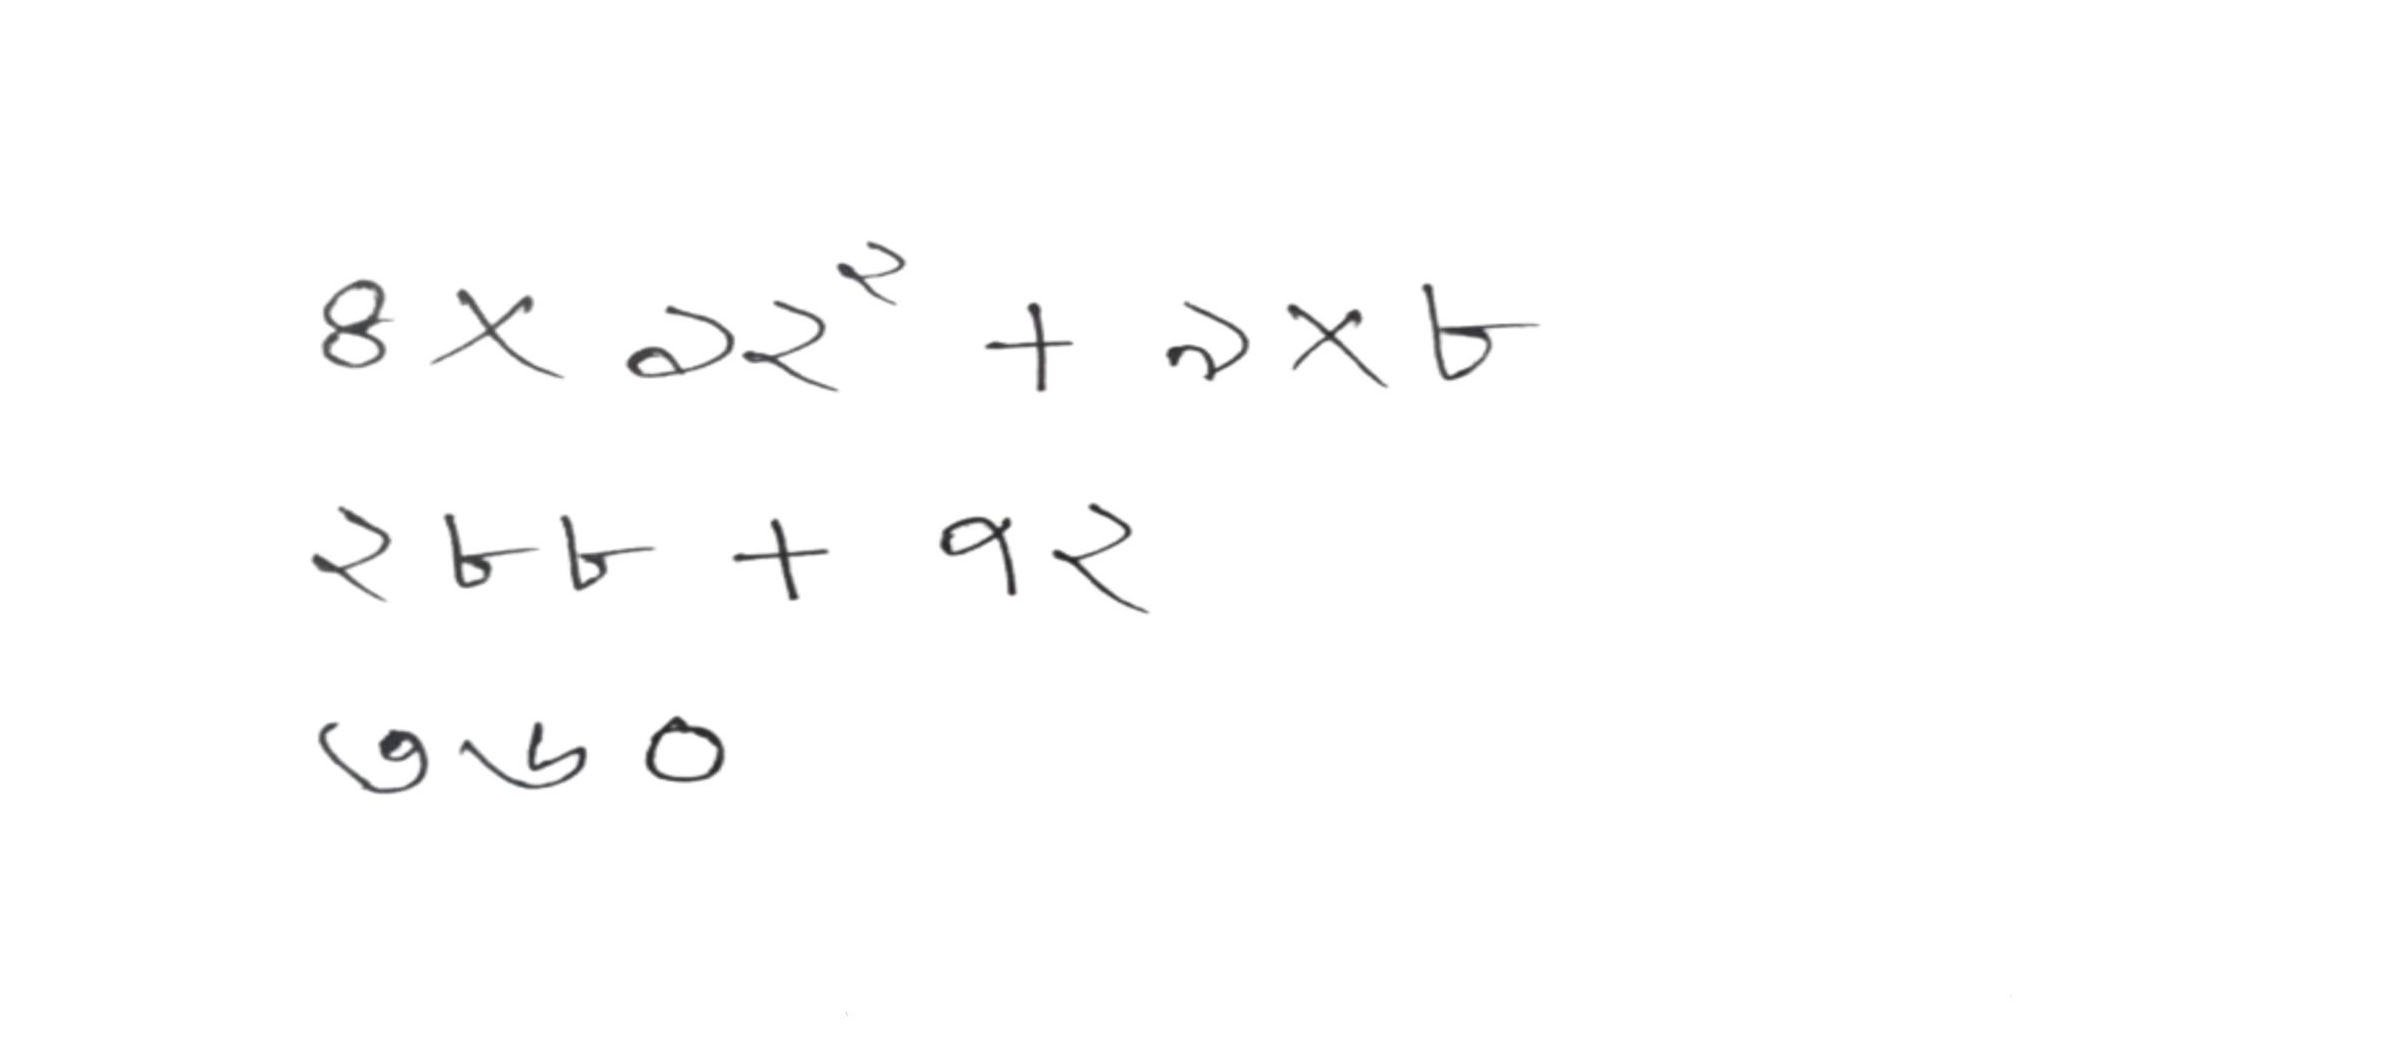 ৪ × ১২² + ৯ × ৮
২৮৮ + ৭২
৩৬০